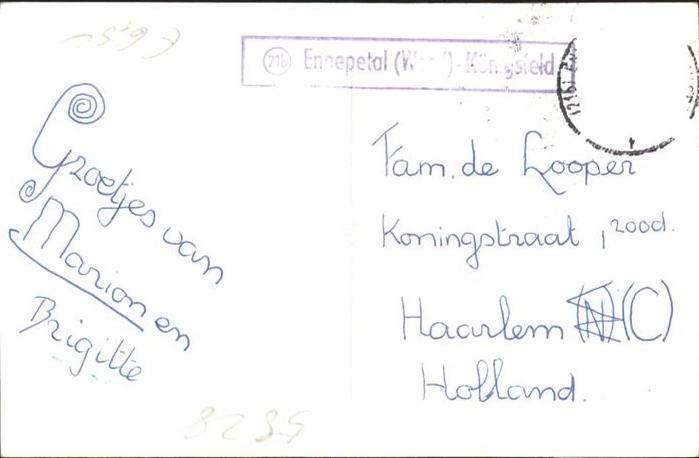 (21b) Ennepetal (Westf)-Königsfeld
Groetjes van
Marion en
Brigitte
Fam. de Looper
Koningstraat, 200d.
Haarlem (N)(C)
Holland.